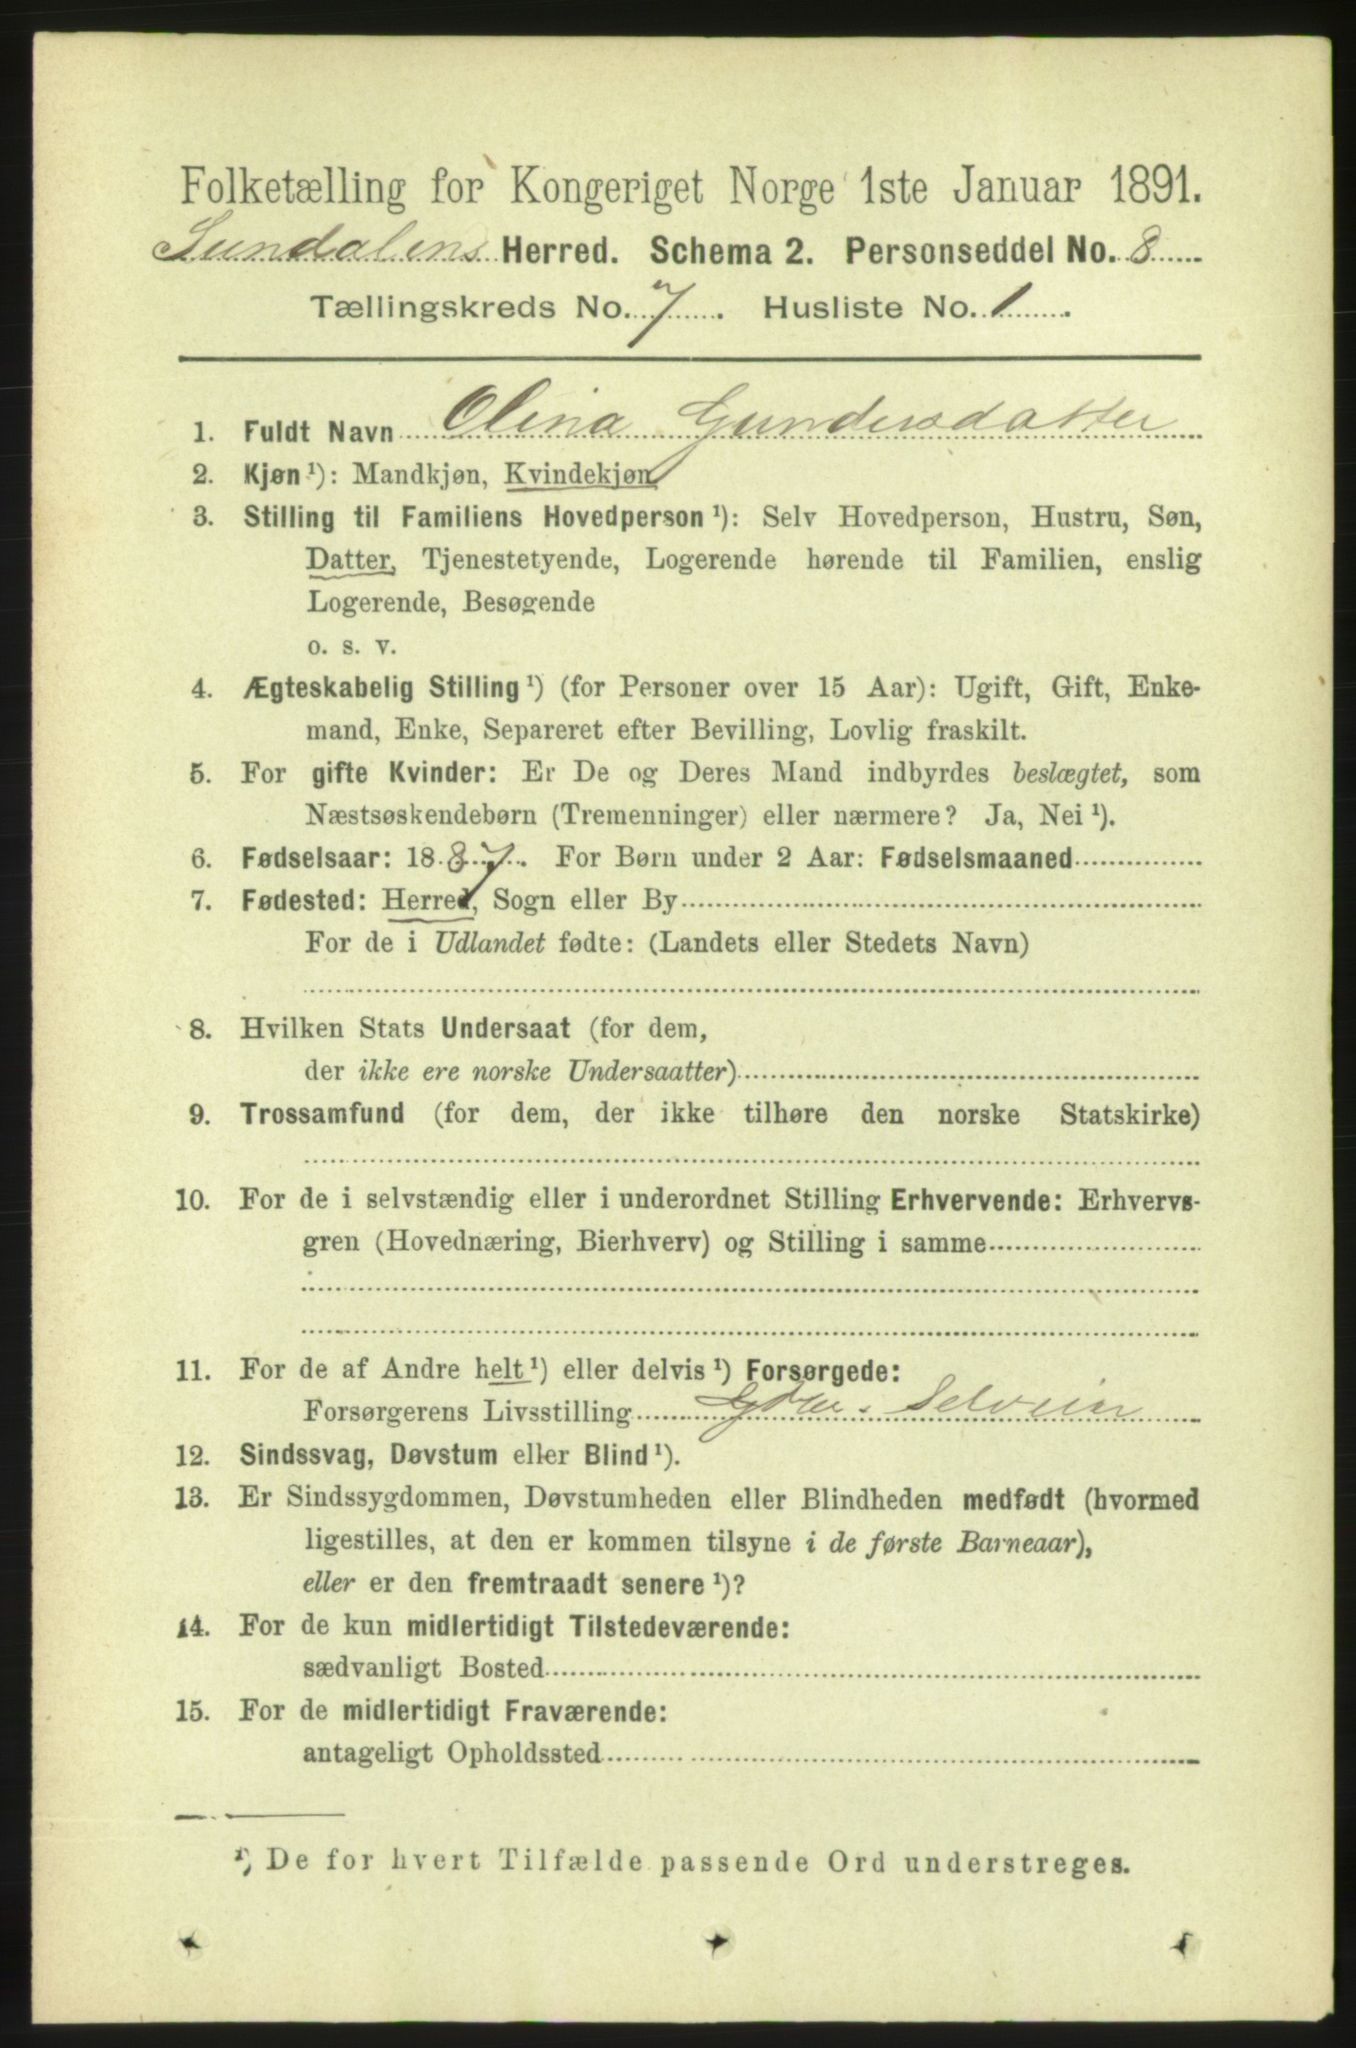 Folketælling for Kongeriget Norge 1ste Januar 1891.
Sundalens Herred. Schema 2. Personseddel No. 8
Tællingskreds No. 7. Husliste No. 1.
1. Fuldt Navn Olina Gundersdatter
2. Kjøn ¹): Mandkjøn, Kvindekjøn
3. Stilling til Familiens Hovedperson ¹): Selv Hovedperson, Hustru, Søn,
Datter, Tjenestetyende, Logerende hørende til Familien, enslig
Logerende, Besøgende
o. s. v.
4. Ægteskabelig Stilling ¹) (for Personer over 15 Aar): Ugift, Gift, Enke-
mand, Enke, Separeret efter Bevilling, Lovlig fraskilt.
5. For gifte Kvinder: Er De og Deres Mand indbyrdes beslægtet, som
Næstsøskendebørn (Tremenninger) eller nærmere? Ja, Nei ¹).
6. Fødselsaar: 1887. For Børn under 2 Aar: Fødselsmaaned
7. Fødested: Herred, Sogn eller By
For de i Udlandet fødte: (Landets eller Stedets Navn)
8. Hvilken Stats Undersaat (for dem,
der ikke ere norske Undersaatter)
9. Trossamfund (for dem, der ikke tilhøre den norske Statskirke)
10. For de i selvstændig eller i underordnet Stilling Erhvervende: Erhvervs-
gren (Hovednæring, Bierhverv) og Stilling i samme
11. For de af Andre helt ¹) eller delvis ¹) Forsørgede:
Forsørgerens Livsstilling Gbr. Selveier
12. Sindssvag, Døvstum eller Blind ¹).
13. Er Sindssygdommen, Døvstumheden eller Blindheden medfødt (hvormed
ligestilles, at den er kommen tilsyne i de første Barneaar),
eller er den fremtraadt senere ¹)?
14. For de kun midlertidigt Tilstedeværende:
sædvanligt Bosted
15. For de midlertidigt Fraværende:
antageligt Opholdssted
¹) De for hvert Tilfælde passende Ord understreges.